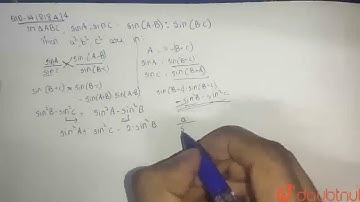 In ΔABC, sinA : sinC = sin(A-B) : sin(B-C)
Then a² b² c² are in:
sinA/sinC × sin(A-B)/sin(B-C)
sin(B+C) × sin(B-C)
= sin(A+B) sin(A-B)
sin²B - sin²C = sin²A - sin²B
sin²A + sin²C = 2·sin²B
sinA = sin(B+C)
sinC = sin(B+A)
sin(B+C)·sin(B-C)
= sin²B - sin²C
a
doubtnut